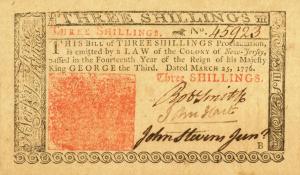 THREE SHILLINGS III
THREE SHILLINGS. No. 45923
THIS Bill of THREE SHILLINGS Proclamation,
is emitted by a LAW of the COLONY of New-Jersey,
passed in the Fourteenth Year of the Reign of his Majesty
King GEORGE the Third. Dated MARCH 25, 1776.
Three SHILLINGS.
Robt Smith
John Hart
John Stevens Junr.
B